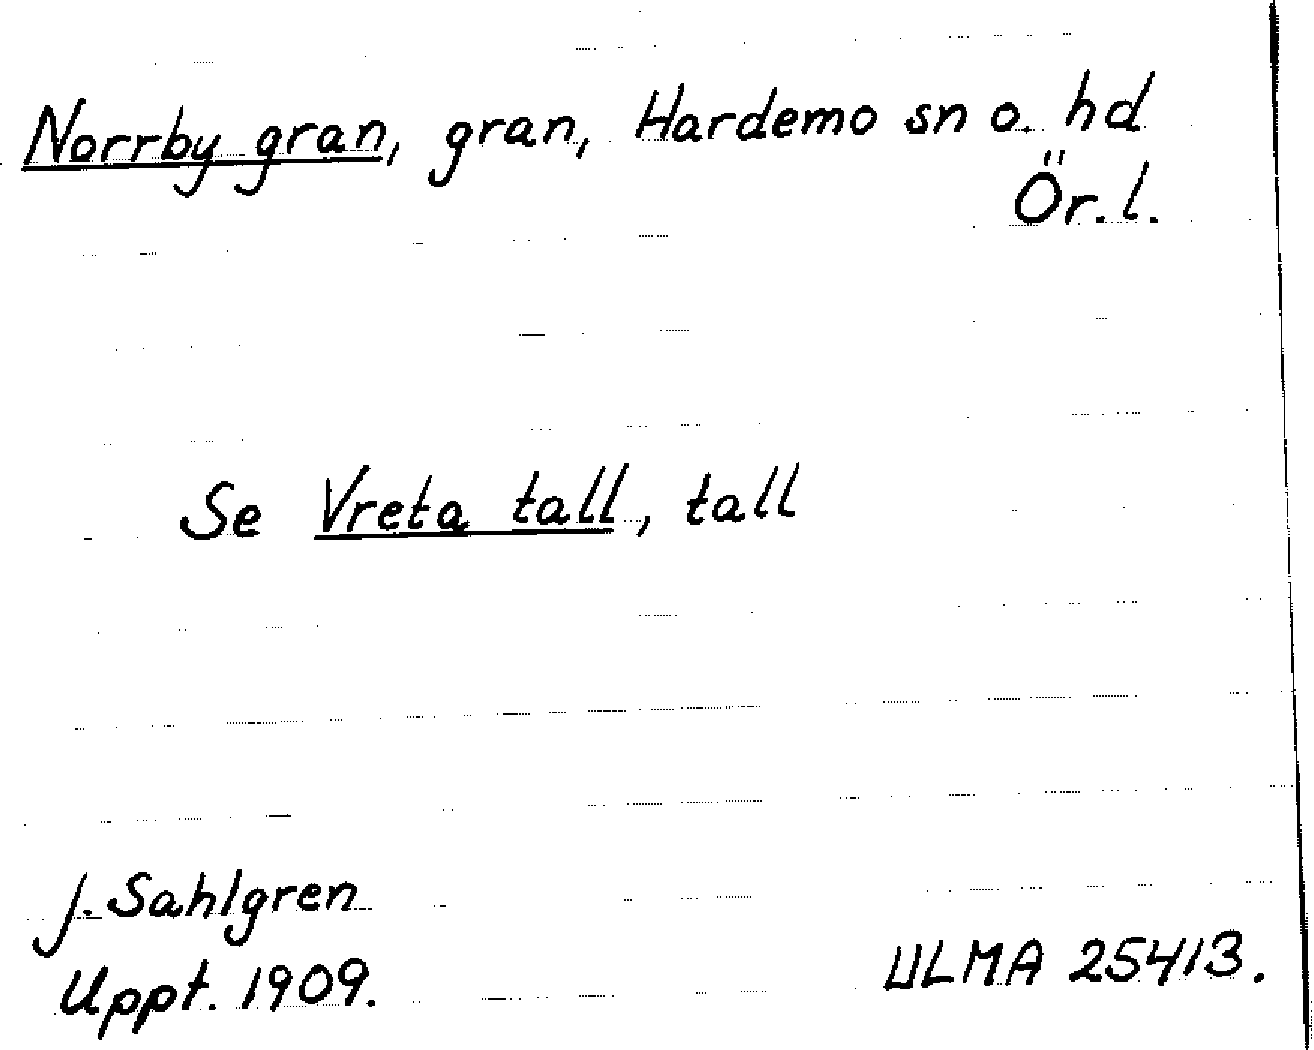 Norrby gran, gran, Hardemo sn o. hd
Ör. l.
Se Vreta tall, tall
J. Sahlgren
Uppt. 1909.
ULMA 25413.